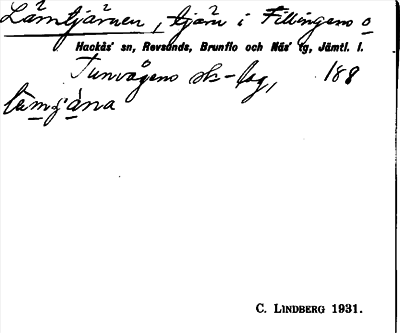 Lämtjärnen, tjärn i Fillingens o
Hackås' sn, Revsunds, Brunflo och Näs' tg, Jämtl. l.
Tunvågens sk-lag, 188
C. LINDBERG 1931.